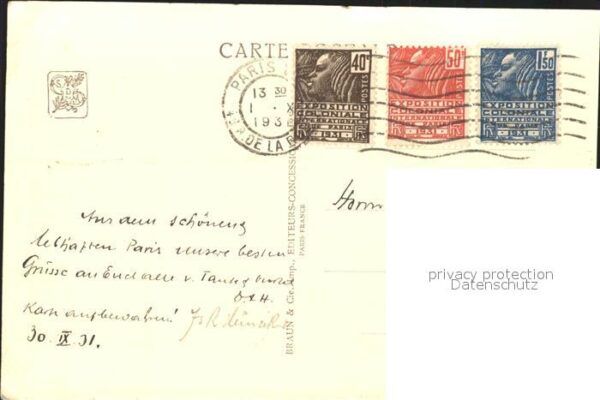 CARTE
PARIS
13 30
1 · X
193
R. DE LA B
40c
POSTES
EXPOSITION
COLONIALE
INTERNATIONALE
PARIS
1931
50c
POSTES
EXPOSITION
COLONIALE
INTERNATIONALE
PARIS
1931
1F50
POSTES
EXPOSITION
COLONIALE
INTERNATIONALE
PARIS
1931
BRAUN & Cie, Imp., EDITEURS-CONCESSION
PARIS-FRANCE
Aus dem schönen,
lebhaften Paris unsere besten
Grüsse an Euch alle v. Tante
Karte aufbewahren!
30. IX 31.
privacy protection
Datenschutz